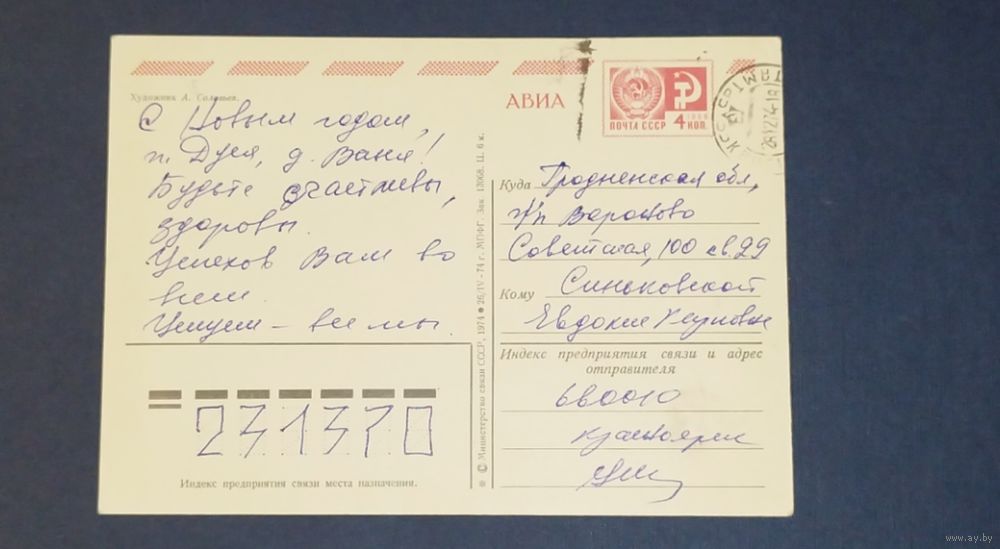 Художник А. Соловьев.
С Новым годом,
т. Дуся, д. Ваня!
Будьте счастливы,
здоровы.
Успехов Вам во
всем.
Целуем – все мы.
231370
Индекс предприятия связи места назначения.
© Министерство связи СССР, 1974 ● 26/IV-74 г. МПФГ. Зак. 13068. Ц. 6 к.
АВИА
ПОЧТА СССР 4 КОП.
Куда Гродненская обл,
г/п Вороново
Советская, 100 кв. 29
Кому Синьковской
Евдокие
Индекс предприятия связи и адрес
отправителя
660010
Красноярск
www.ay.by